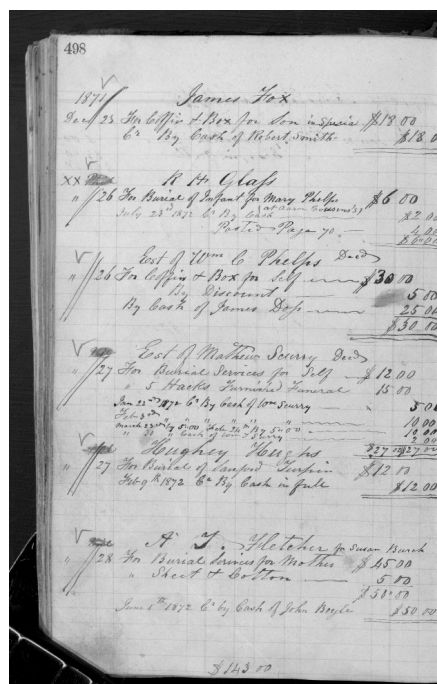 498
1871 James Fox
Dec 23 For Coffin & Box for Son in Specie $18 00
Cr By Cash of Robert Smith $18 0
XX R H Glass
" 26 For Burial of Infant for Mary Phelps $6 00
July 23d 1872 Cr By Cash $2 00
Posted Page 70 4 00
$6 00
Est of Wm C Phelps Decd
" 26 For Coffin & Box for Self $30 00
By Discount 5 00
By Cash of James Doss 25 00
$30 00
Est of Mathew Scurry Decd
" 27 For Burial Services for Self $12 00
" 5 Hacks Furnished Funeral 15 00
Jan 22nd 1872 Cr By Cash of Wm Scurry 5 00
Feb 3rd 10 00
March 23rd " 5.00 Feb 24th By 5.00 10 00
" 30 " Cash of Wm Scurry 2 00
$27 00 $27 00
Hughey Hughs
" 27 For Burial of Turpin $12 00
Feb 9th 1872 Cr By Cash in full $12 00
A T. Fletcher for Susan Burch
" 28 For Burial Services for Mother $45 00
" Sheet & Cotton 5 00
$50 00
June 1872 Cr by Cash of John Boyle $50 00
$143 00